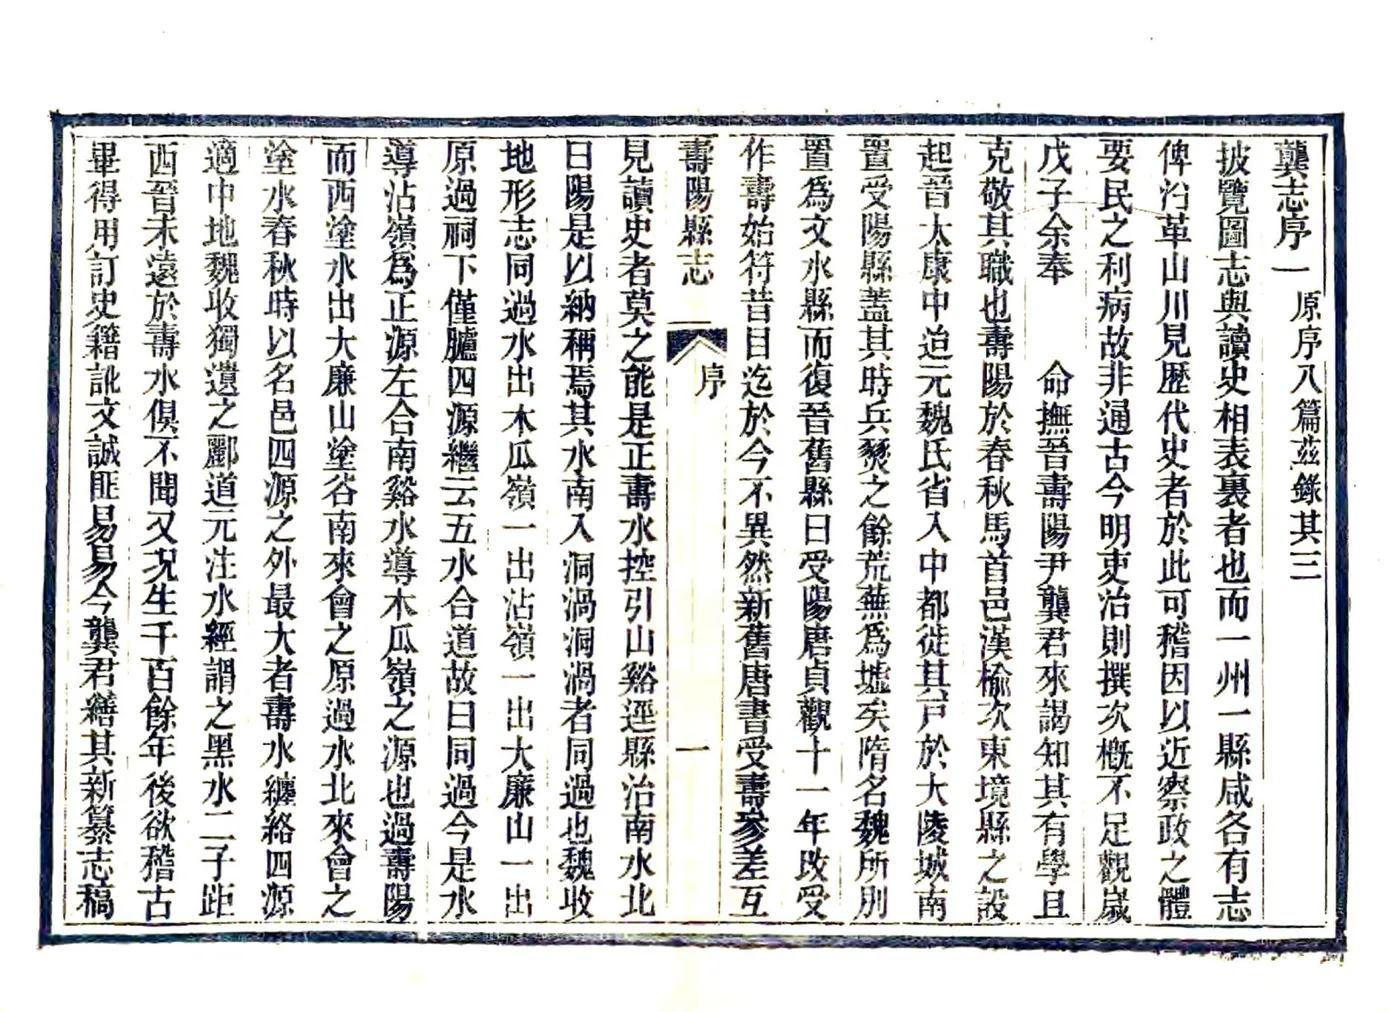 龔志序一 原序八篇茲錄其三
披覽圖志與讀史相表裏者也而一州一縣咸各有志
俾沿革山川見歷代史者於此可稽因以近察政之體
要民之利病故非通古今明吏治則撰次概不足觀歲
戊子余奉 命撫晉壽陽尹龔君來謁知其有學且
克敬其職也壽陽於春秋馬首邑漢榆次東境縣之設
起晉太康中迨元魏氏省入中都徙其戸於大陵城南
置受陽縣蓋其時兵燹之餘荒蕪為墟矣隋名魏所別
置為文水縣而復晉舊縣曰受陽唐貞觀十一年改受
作壽始符昔目迄於今不異然新舊唐書受壽參差互
壽陽縣志 序 一
見讀史者莫之能是正壽水控引山谿逕縣治南水北
曰陽是以納稱焉其水南入洞渦洞渦者同過也魏收
地形志同過水出木瓜嶺一出沾嶺一出大廉山一出
原過祠下僅臚四源繼云五水合道故曰同過今是水
導沾嶺為正源左合南谿水導木瓜嶺之源也過壽陽
而西塗水出大廉山塗谷南來會之原過水北來會之
塗水春秋時以名邑四源之外最大者壽水纏絡四源
適中地魏收獨遺之酈道元注水經謂之黑水二子距
西晉未遠於壽水俱不聞又況生千百餘年後欲稽古
畢得用訂史籍訛文誠匪易易今龔君繕其新纂志稿